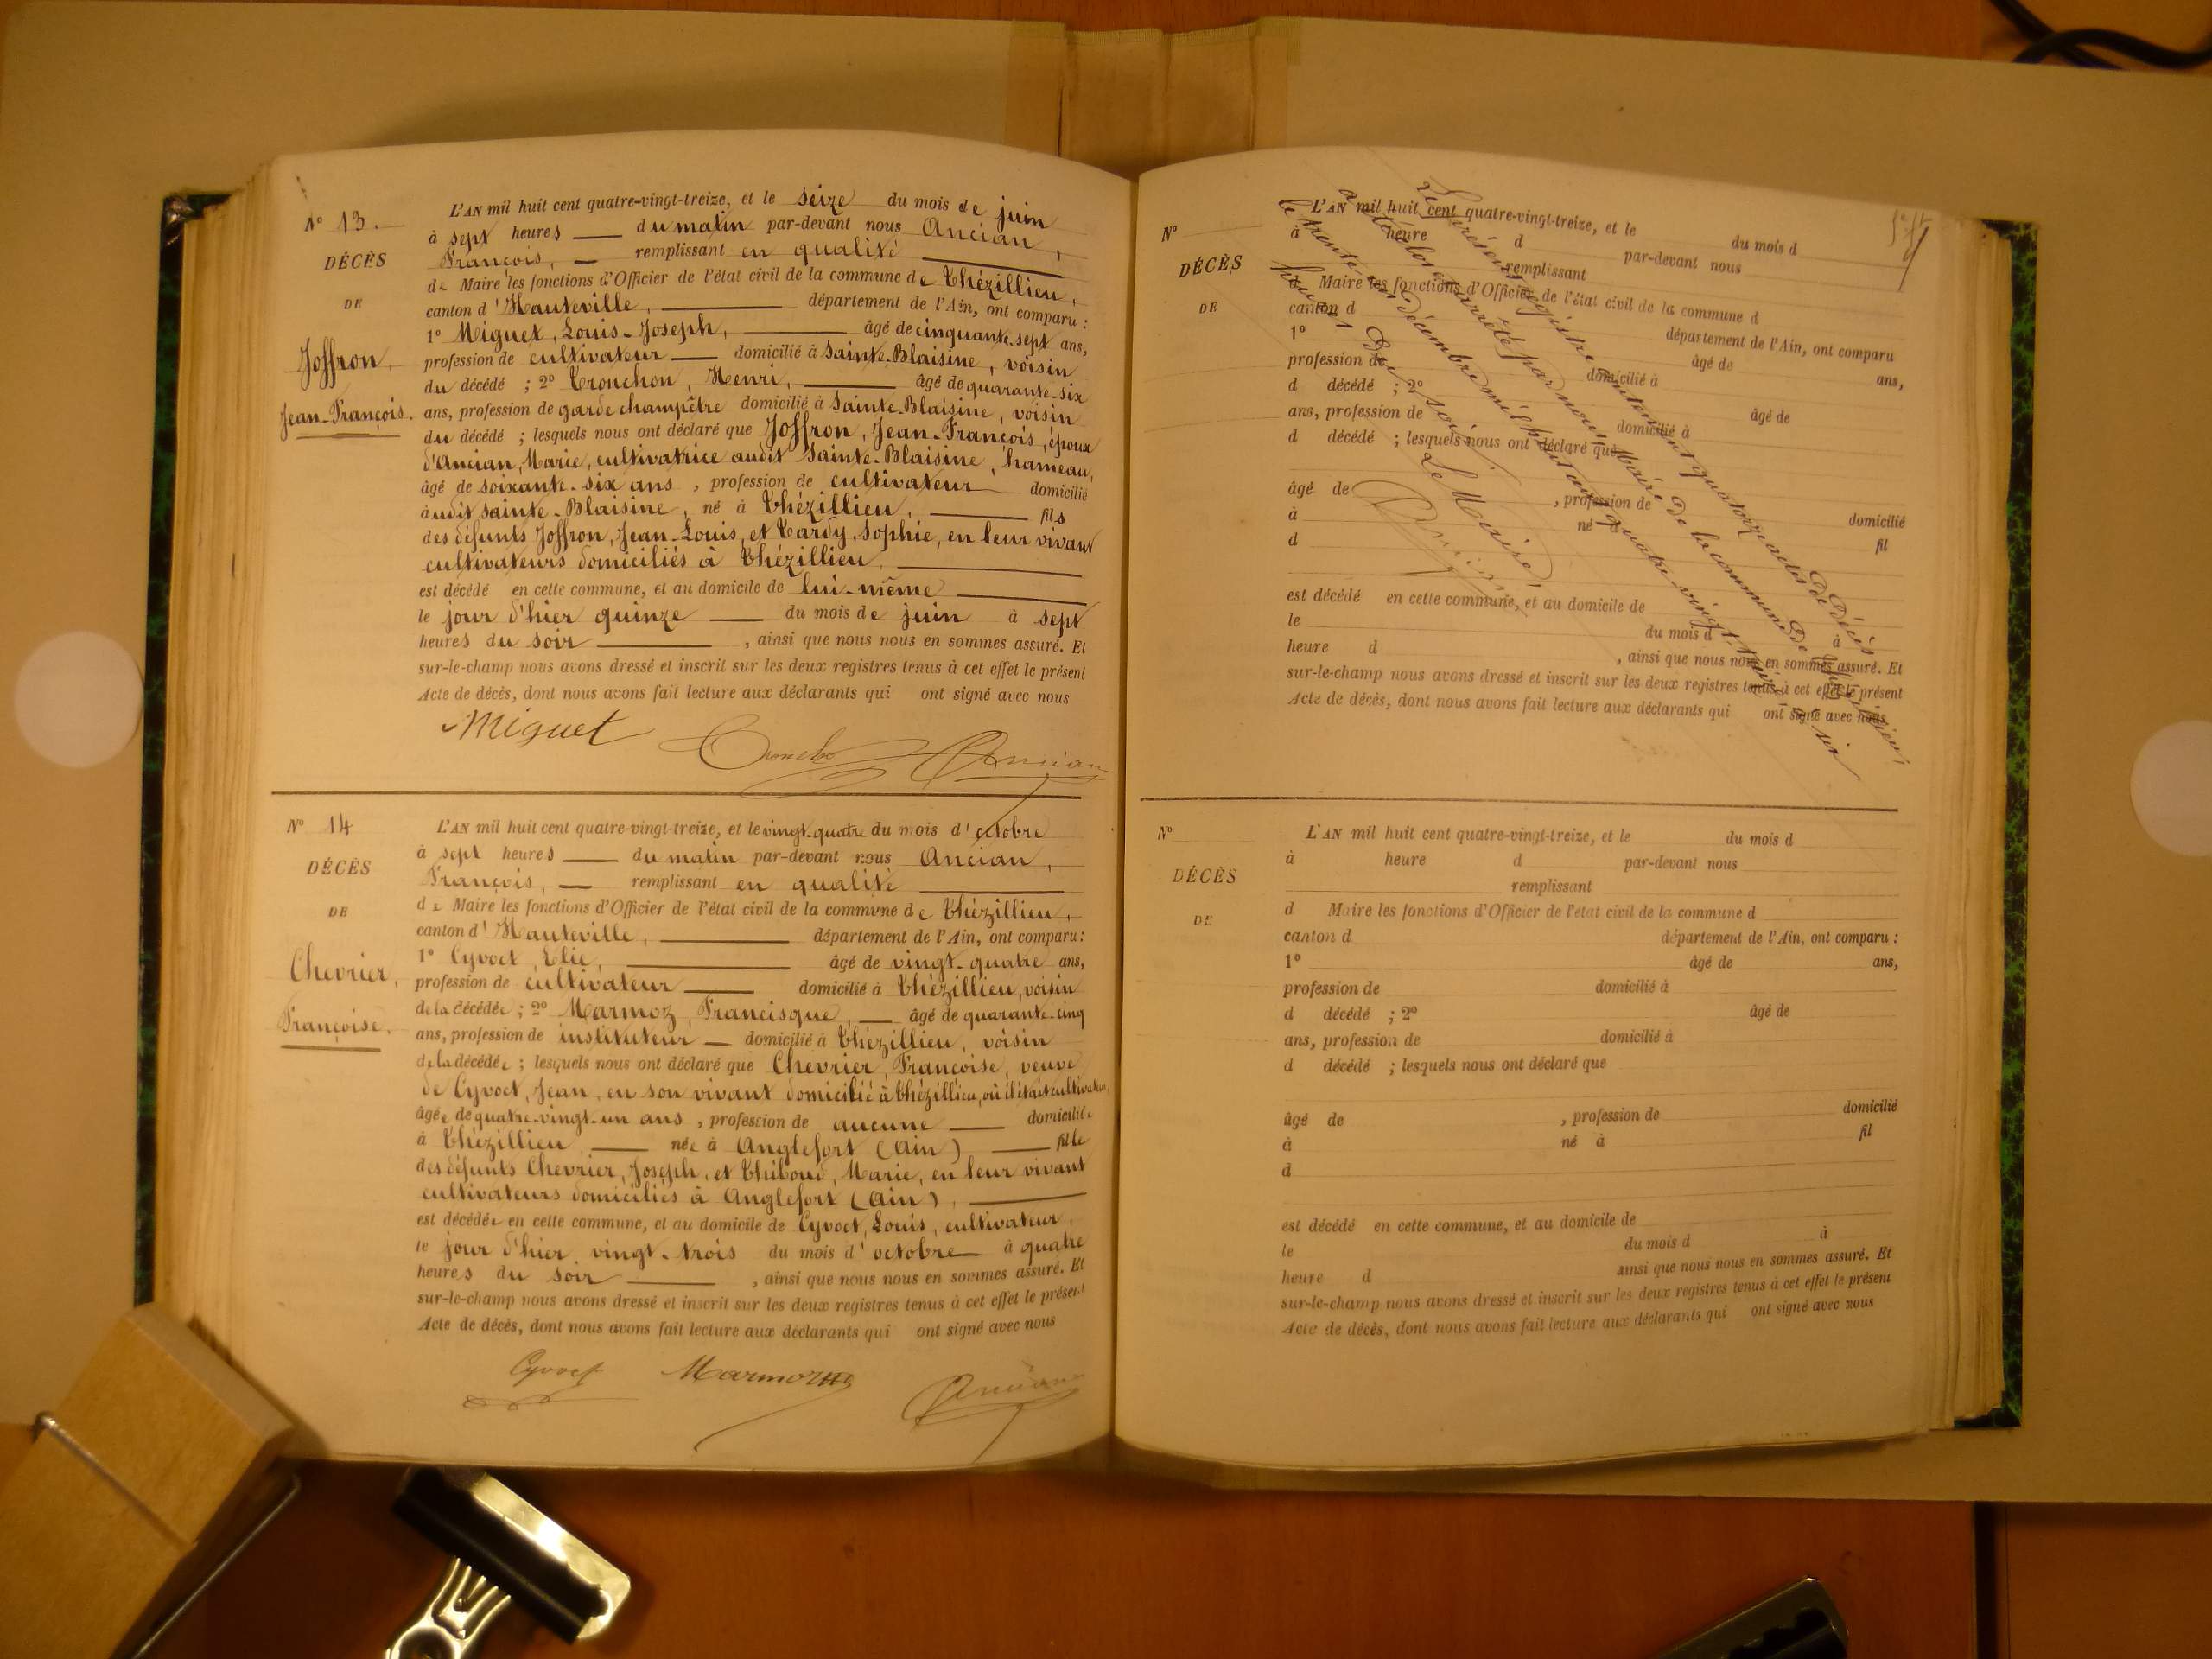 N° 13.
DÉCÈS
DE
Joffron,
Jean-François.
L'AN mil huit cent quatre-vingt-treize, et le seize du mois de juin
à sept heures du matin par-devant nous Ancian,
François, remplissant en qualité
de Maire les fonctions d'Officier de l'état civil de la commune de Thézillieu,
canton d'Hauteville, département de l'Ain, ont comparu :
1° Miguet, Louis-Joseph, âgé de cinquante-sept ans,
profession de cultivateur domicilié à Sainte-Blaisine, voisin
du décédé ; 2° Tronchon, Henri, âgé de quarante-six
ans, profession de garde champêtre domicilié à Sainte-Blaisine, voisin
du décédé ; lesquels nous ont déclaré que Joffron, Jean-François, époux
d'Ancian, Marie, cultivatrice audit Sainte-Blaisine, hameau,
âgé de soixante-six ans, profession de cultivateur domicilié
audit Sainte-Blaisine, né à Thézillieu, fils
des défunts Joffron, Jean-Louis, et Tardy, Sophie, en leur vivant
cultivateurs domiciliés à Thézillieu,
est décédé en cette commune, et au domicile de lui-même
le jour d'hier quinze du mois de juin à sept
heures du soir, ainsi que nous nous en sommes assuré. Et
sur-le-champ nous avons dressé et inscrit sur les deux registres tenus à cet effet le présent
Acte de décès, dont nous avons fait lecture aux déclarants qui ont signé avec nous
Miguet Troncho Ancian
N° 14
DÉCÈS
DE
Chevrier,
Françoise.
L'AN mil huit cent quatre-vingt-treize, et le vingt-quatre du mois d'octobre
à sept heures du matin par-devant nous Ancian,
François, remplissant en qualité
de Maire les fonctions d'Officier de l'état civil de la commune de Thézillieu,
canton d'Hauteville, département de l'Ain, ont comparu :
1° Cyvoct, Elie, âgé de vingt-quatre ans,
profession de cultivateur domicilié à Thézillieu, voisin
de la décédée ; 2° Marmoz, Francisque, âgé de quarante-cinq
ans, profession de instituteur domicilié à Thézillieu, voisin
de la décédée ; lesquels nous ont déclaré que Chevrier, Françoise, veuve
de Cyvoct, Jean, en son vivant domicilié à Thézillieu, où il était cultivateur,
âgée de quatre-vingt-un ans, profession de aucune domiciliée
à Thézillieu, née à Anglefort (Ain) fille
des défunts Chevrier, Joseph, et Thiboud, Marie, en leur vivant
cultivateurs domiciliés à Anglefort (Ain),
est décédée en cette commune, et au domicile de Cyvoct, Louis, cultivateur,
le jour d'hier vingt-trois du mois d'octobre à quatre
heures du soir, ainsi que nous nous en sommes assuré. Et
sur-le-champ nous avons dressé et inscrit sur les deux registres tenus à cet effet le présent
Acte de décès, dont nous avons fait lecture aux déclarants qui ont signé avec nous
Cyvoct Marmoz Ancian
N°
DÉCÈS
DE
L'AN mil huit cent quatre-vingt-treize, et le du mois d
à heure d par-devant nous
remplissant
Maire les fonctions d'Officier de l'état civil de la commune d
canton d département de l'Ain, ont comparu
1° âgé de ans,
profession de domicilié à
d décédé ; 2° âgé de
ans, profession de domicilié à
d décédé ; lesquels nous ont déclaré que
âgé de , profession de domicilié
à né à fil
d
est décédé en cette commune, et au domicile de
le du mois d à
heure d , ainsi que nous nous en sommes assuré. Et
sur-le-champ nous avons dressé et inscrit sur les deux registres tenus à cet effet le présent
Acte de décès, dont nous avons fait lecture aux déclarants qui ont signé avec nous
Le présent registre contenant quatorze actes de décès
a été clos et arrêté par nous Maire de la commune de Thézillieu,
le trente un décembre mil huit cent quatre vingt-treize à six
heures du soir.
Le Maire
Ancian
N°
DÉCÈS
DE
L'AN mil huit cent quatre-vingt-treize, et le du mois d
à heure d par-devant nous
remplissant
d Maire les fonctions d'Officier de l'état civil de la commune d
canton d département de l'Ain, ont comparu :
1° âgé de ans,
profession de domicilié à
d décédé ; 2° âgé de
ans, profession de domicilié à
d décédé ; lesquels nous ont déclaré que
âgé de , profession de domicilié
à né à fil
d
est décédé en cette commune, et au domicile de
le du mois d à
heure d ainsi que nous nous en sommes assuré. Et
sur-le-champ nous avons dressé et inscrit sur les deux registres tenus à cet effet le présent
Acte de décès, dont nous avons fait lecture aux déclarants qui ont signé avec nous